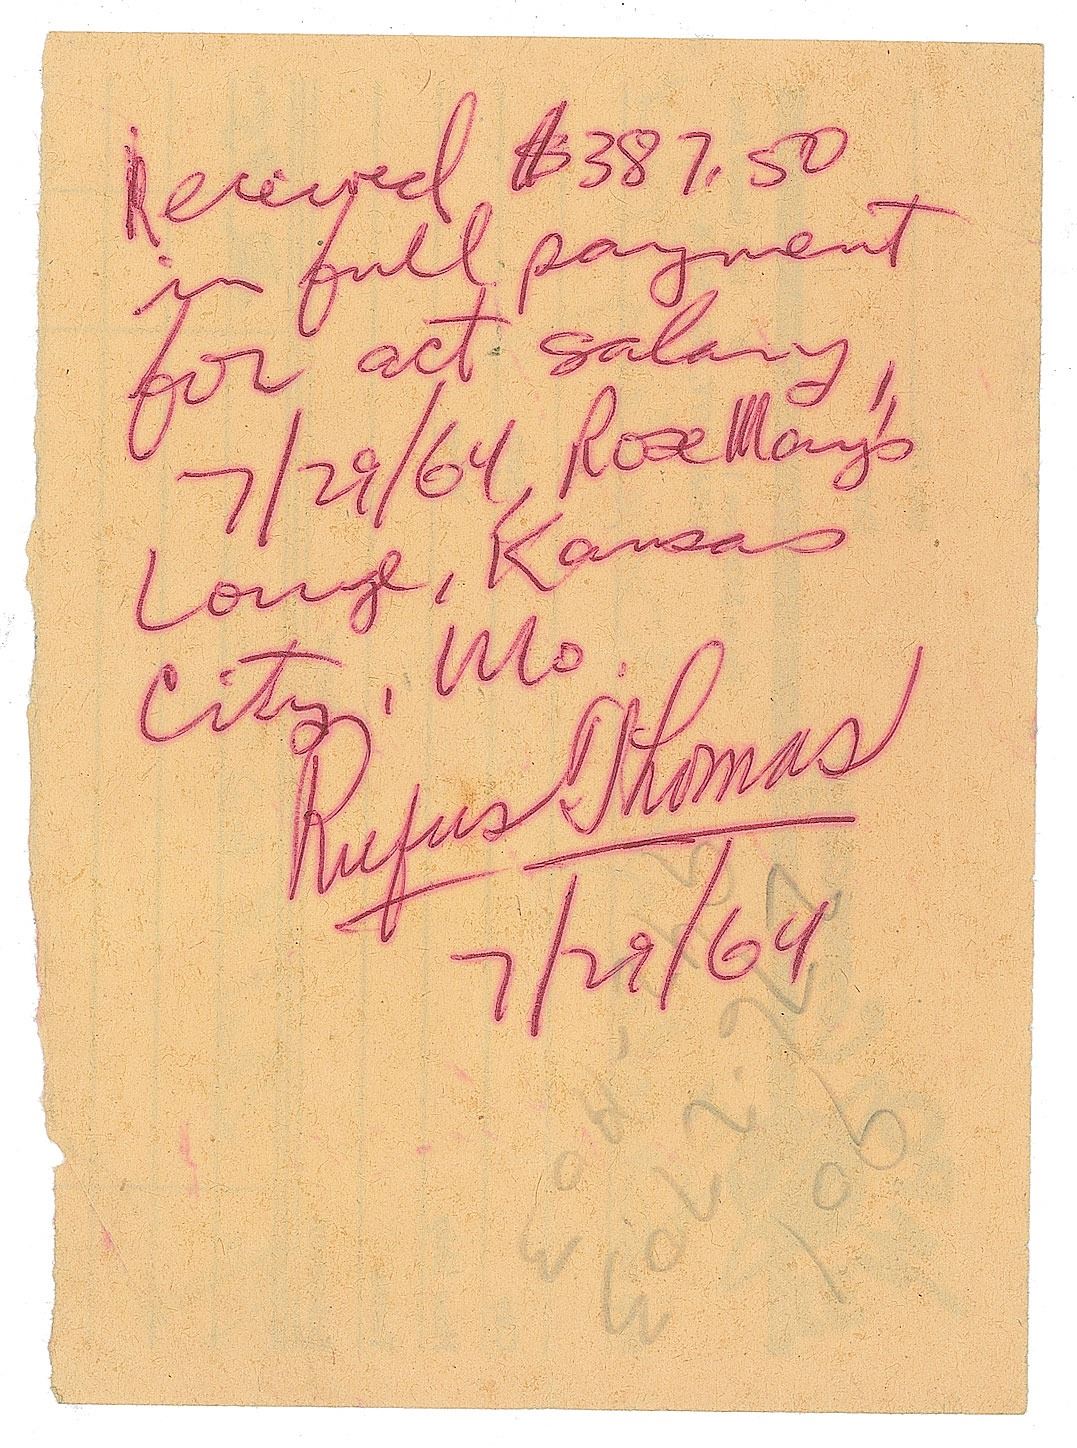 Received $387.50
in full payment
for act salary,
7/29/64, RoseMary's
Lounge, Kansas
City, Mo.
Rufus Thomas
7/29/64